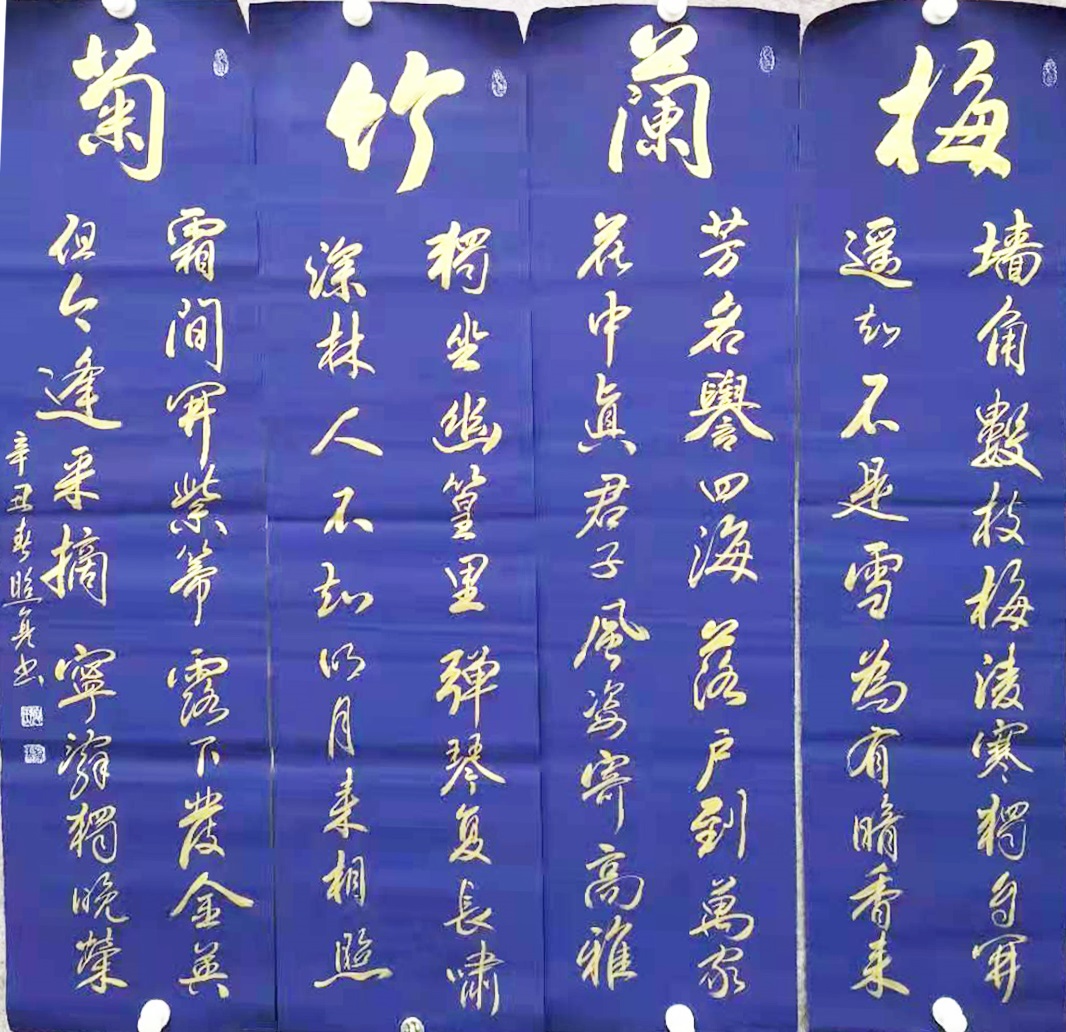 梅
墙角數枝梅凌寒獨自開
遥知不是雪為有暗香来
蘭
芳名譽四海落户到萬家
花中真君子風姿寄高雅
竹
獨坐幽篁里彈琴复長嘯
深林人不知明月来相照
菊
霜間開紫蒂露下發金英
但令逢采摘寧辞獨晚榮
辛丑春照炅书